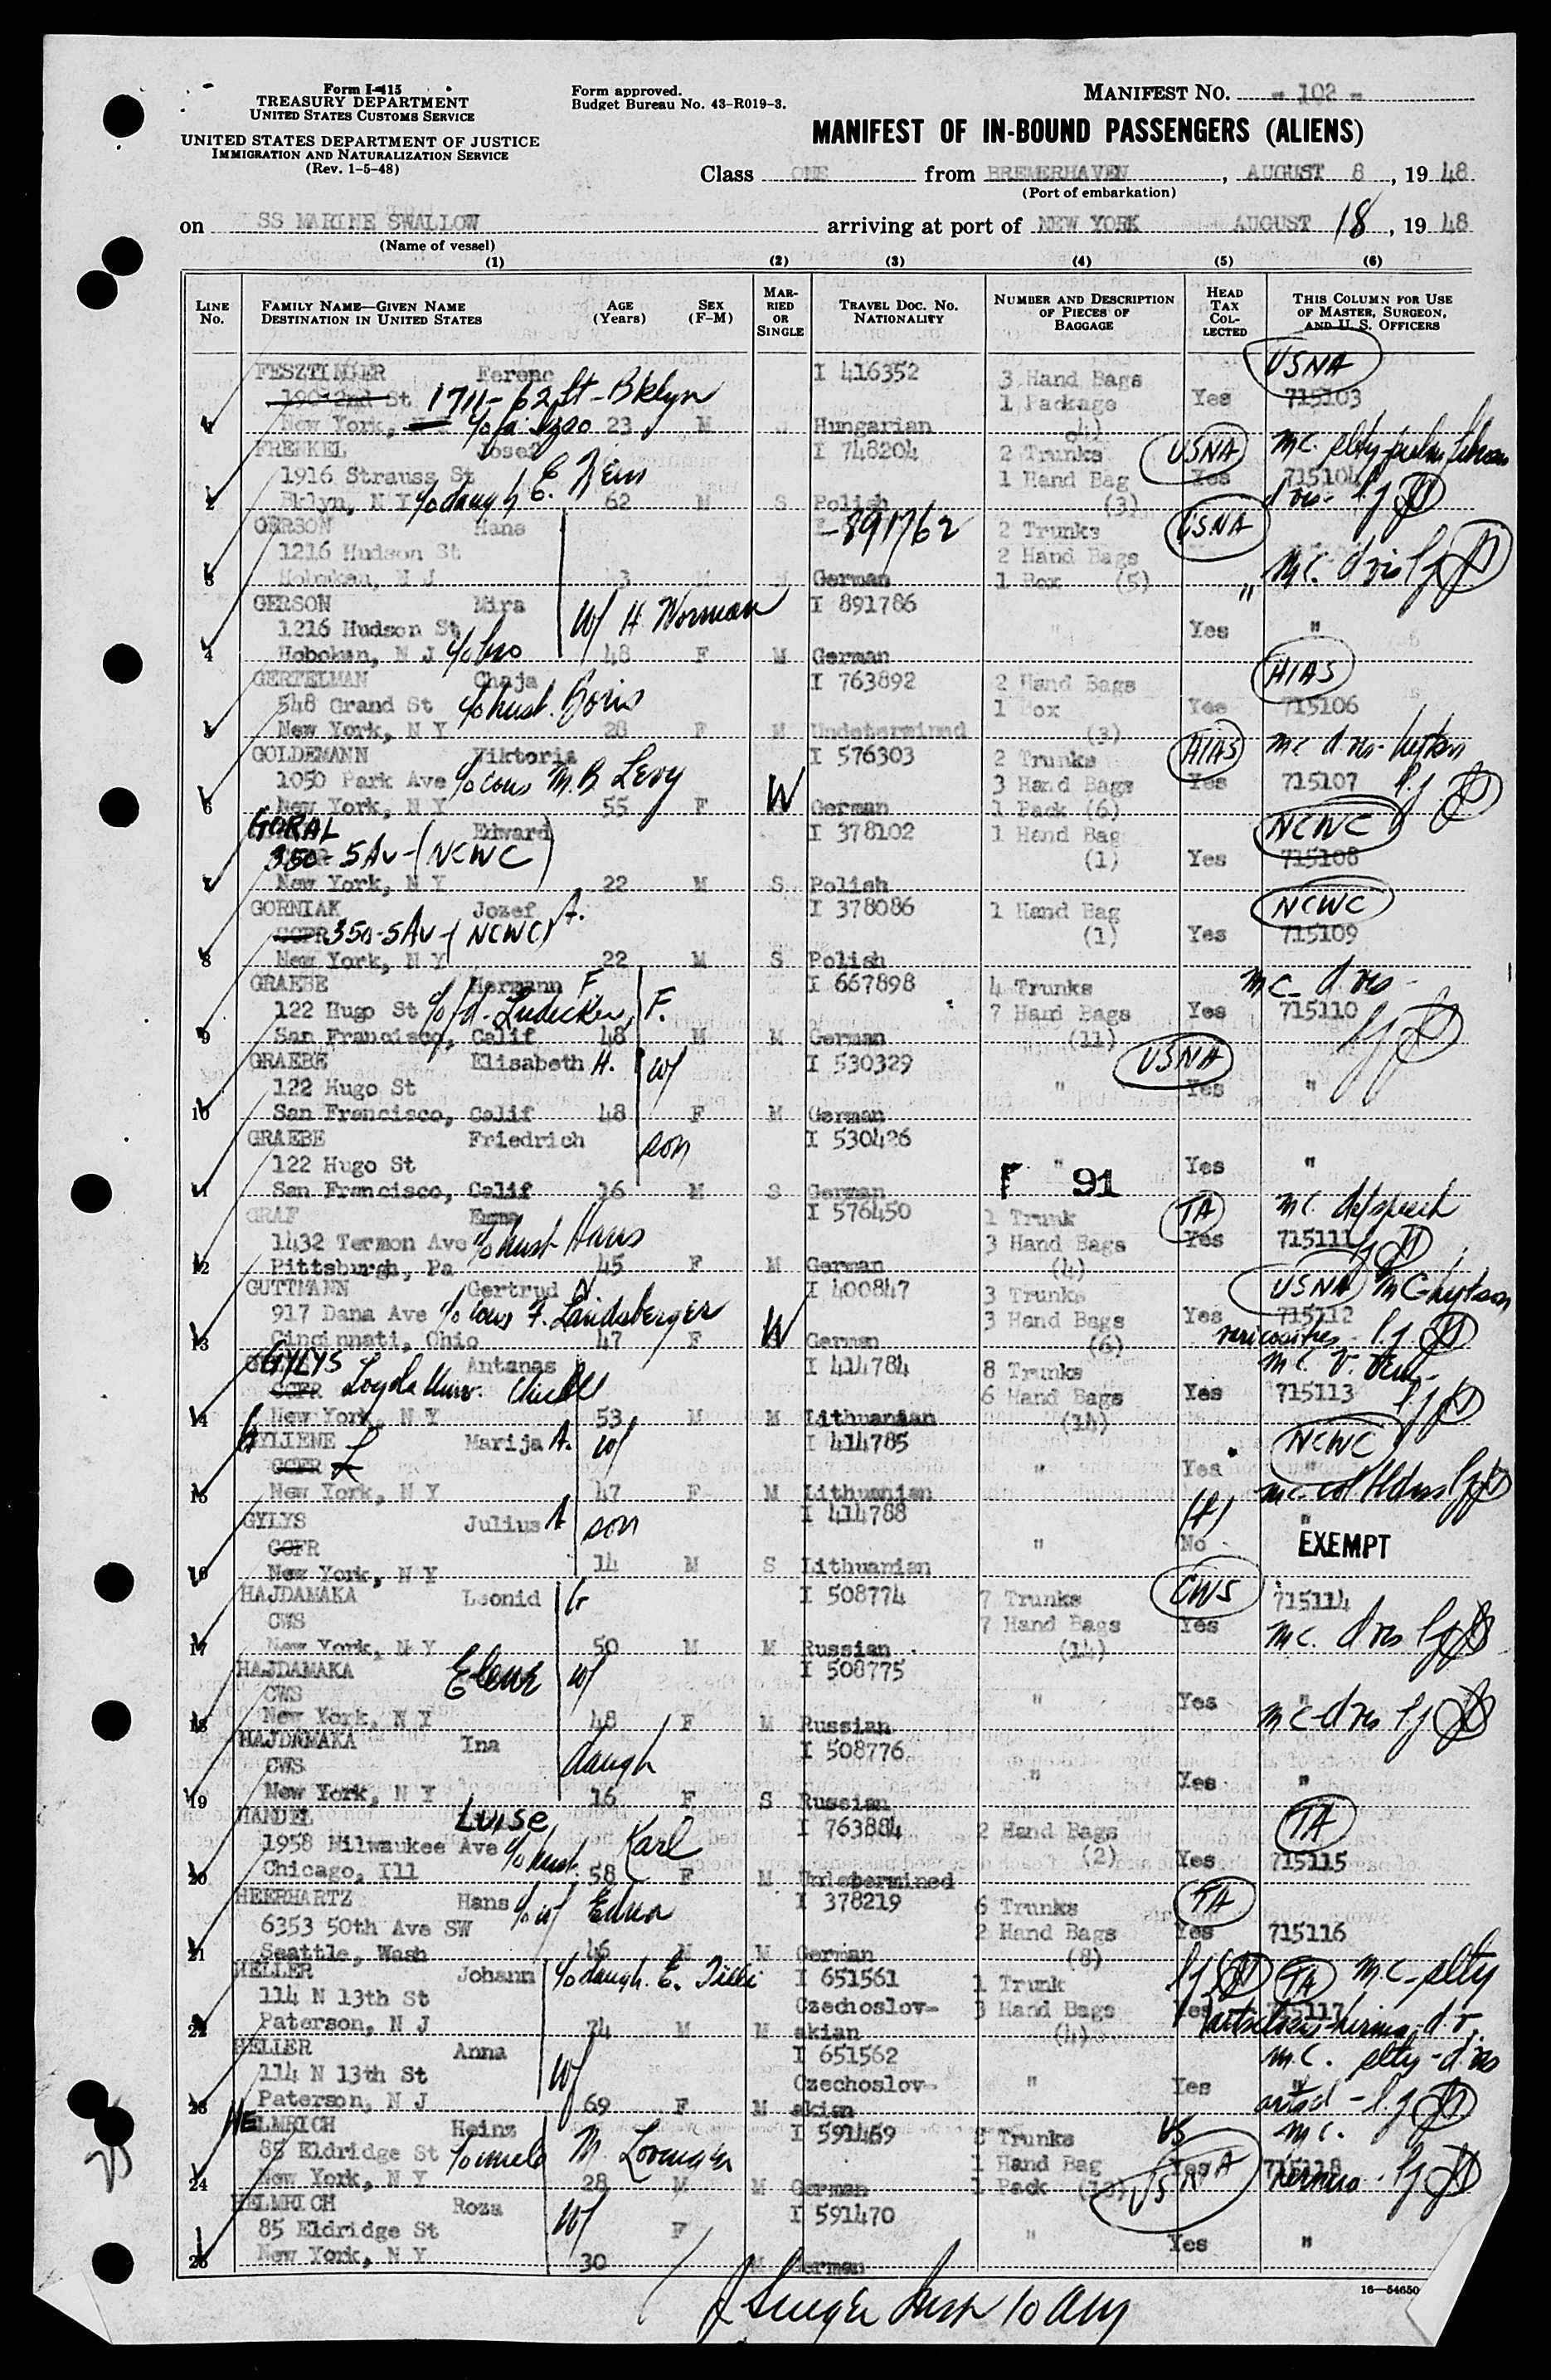 Form I-415
TREASURY DEPARTMENT
UNITED STATES CUSTOMS SERVICE
UNITED STATES DEPARTMENT OF JUSTICE
IMMIGRATION AND NATURALIZATION SERVICE
(Rev. 1-5-48)
Form approved.
Budget Bureau No. 43-R019-3.
MANIFEST NO. - 102 -
MANIFEST OF IN-BOUND PASSENGERS (ALIENS)
Class ONE from BREMERHAVEN, AUGUST 8, 1948
(Port of embarkation)
on SS MARINE SWALLOW arriving at port of NEW YORK AUGUST 18, 1948
(Name of vessel)
(1) (2) (3) (4) (5) (6)
LINE No. FAMILY NAME—GIVEN NAME DESTINATION IN UNITED STATES AGE (Years) SEX (F-M) MARRIED OR SINGLE TRAVEL DOC. No. NATIONALITY NUMBER AND DESCRIPTION OF PIECES OF BAGGAGE HEAD TAX COLLECTED THIS COLUMN FOR USE OF MASTER, SURGEON, AND U. S. OFFICERS
USNA
FESZTINGER Ferenc I 416352 3 Hand Bags
190 2nd St 1711-62 St-Bklyn 1 Package Yes 715103
New York, 23 M Hungarian
FRENKEL Josef I 748204 2 Trunks USNA mc.
1916 Strauss St 1 Hand Bag Yes 715104
2 Bklyn, N Y c/o daugh E. 62 M S Polish (3)
GERSON Hans 891762 2 Trunks USNA
1216 Hudson St 2 Hand Bags
3 Hoboken, N J M German 1 Box (5) " mc.
GERSON Mira w/ H Norman I 891786
1216 Hudson St " Yes "
4 Hoboken, N J c/o bro 48 F M German
GERTELMAN Chaja I 763892 2 Hand Bags HIAS
548 Grand St c/o husb. Boris 1 Box Yes 715106
5 New York, N Y 28 F M Undetermined (3)
GOLDEMANN Viktoria I 576303 2 Trunks HIAS mc
1050 Park Ave c/o cous M.B. Levy 3 Hand Bags Yes 715107
6 New York, N Y 55 F W German 1 Pack (6)
GORAL Edward I 378102 1 Hand Bag NCWC
350-5 Av-(NCWC) (1) Yes 715108
7 New York, N Y 22 M S Polish
GORNIAK Jozef A. I 378086 1 Hand Bag NCWC
CCFR 350-5 Av-(NCWC) (1) Yes 715109
8 New York, N Y 22 M S Polish
GRAEBE Hermann F I 667898 4 Trunks mc
122 Hugo St F. 7 Hand Bags Yes 715110
9 San Francisco, Calif 48 M M German (11)
GRAEBE Elisabeth H. w/ I 530329 USNA
122 Hugo St " Yes "
10 San Francisco, Calif 48 F M German
GRAEBE Friedrich son I 530426
122 Hugo St " Yes "
11 San Francisco, Calif 16 M S German F 91
GRAF Emma I 576450 1 Trunk TA mc.
1432 Termon Ave c/o husb Hans 3 Hand Bags Yes 715111
12 Pittsburgh, Pa 45 F M German (4)
GUTTMANN Gertrud I 400847 3 Trunks USNA mc
917 Dana Ave c/o cous F. Landsberger 3 Hand Bags Yes 715112
13 Cincinnati, Ohio 47 F W German (6)
GYLYS Antanas I 414784 8 Trunks mc
CCFR Loyola Univ. 6 Hand Bags Yes 715113
14 New York, N Y 53 M M Lithuanian (14)
GYLIENE Marija A. w/ I 414785 NCWC
CCFR " Yes "
15 New York, N Y 47 F M Lithuanian mc
GYLYS Julius A son I 414788 "
CCFR " No EXEMPT
16 New York, N Y 14 M S Lithuanian
HAJDAMAKA Leonid G I 508774 7 Trunks CWS 715114
CWS 7 Hand Bags Yes
17 New York, N Y 50 M M Russian (14) mc.
HAJDAMAKA w/ I 508775
CWS " Yes "
18 New York, N Y 48 F M Russian mc
HAJDAMAKA Ina daugh I 508776
CWS " Yes "
19 New York, N Y 16 F S Russian
HANDEL Luise I 763884 2 Hand Bags TA
1958 Milwaukee Ave c/o husb. Karl (2) Yes 715115
20 Chicago, Ill 58 F M Undetermined
HEERHARTZ Hans c/o w/ Edna I 378219 6 Trunks TA
6353 50th Ave SW 2 Hand Bags Yes 715116
21 Seattle, Wash 46 M M German (8)
HELLER Johann c/o daugh. E. I 651561 1 Trunk TA mc
114 N 13th St Czechoslov- 3 Hand Bags Yes 715117
22 Paterson, N J 74 M M akian (4)
HELLER Anna w/ I 651562 mc.
114 N 13th St Czechoslov- " Yes "
23 Paterson, N J 69 F M akian
HELMRICH Heinz I 591469 Trunks mc.
85 Eldridge St c/o uncle M. 1 Hand Bag Yes 715118
24 New York, N Y 28 M M German 1 Pack
HELMRICH Roza w/ I 591470
85 Eldridge St F " Yes "
25 New York, N Y 30 M German
16—54650